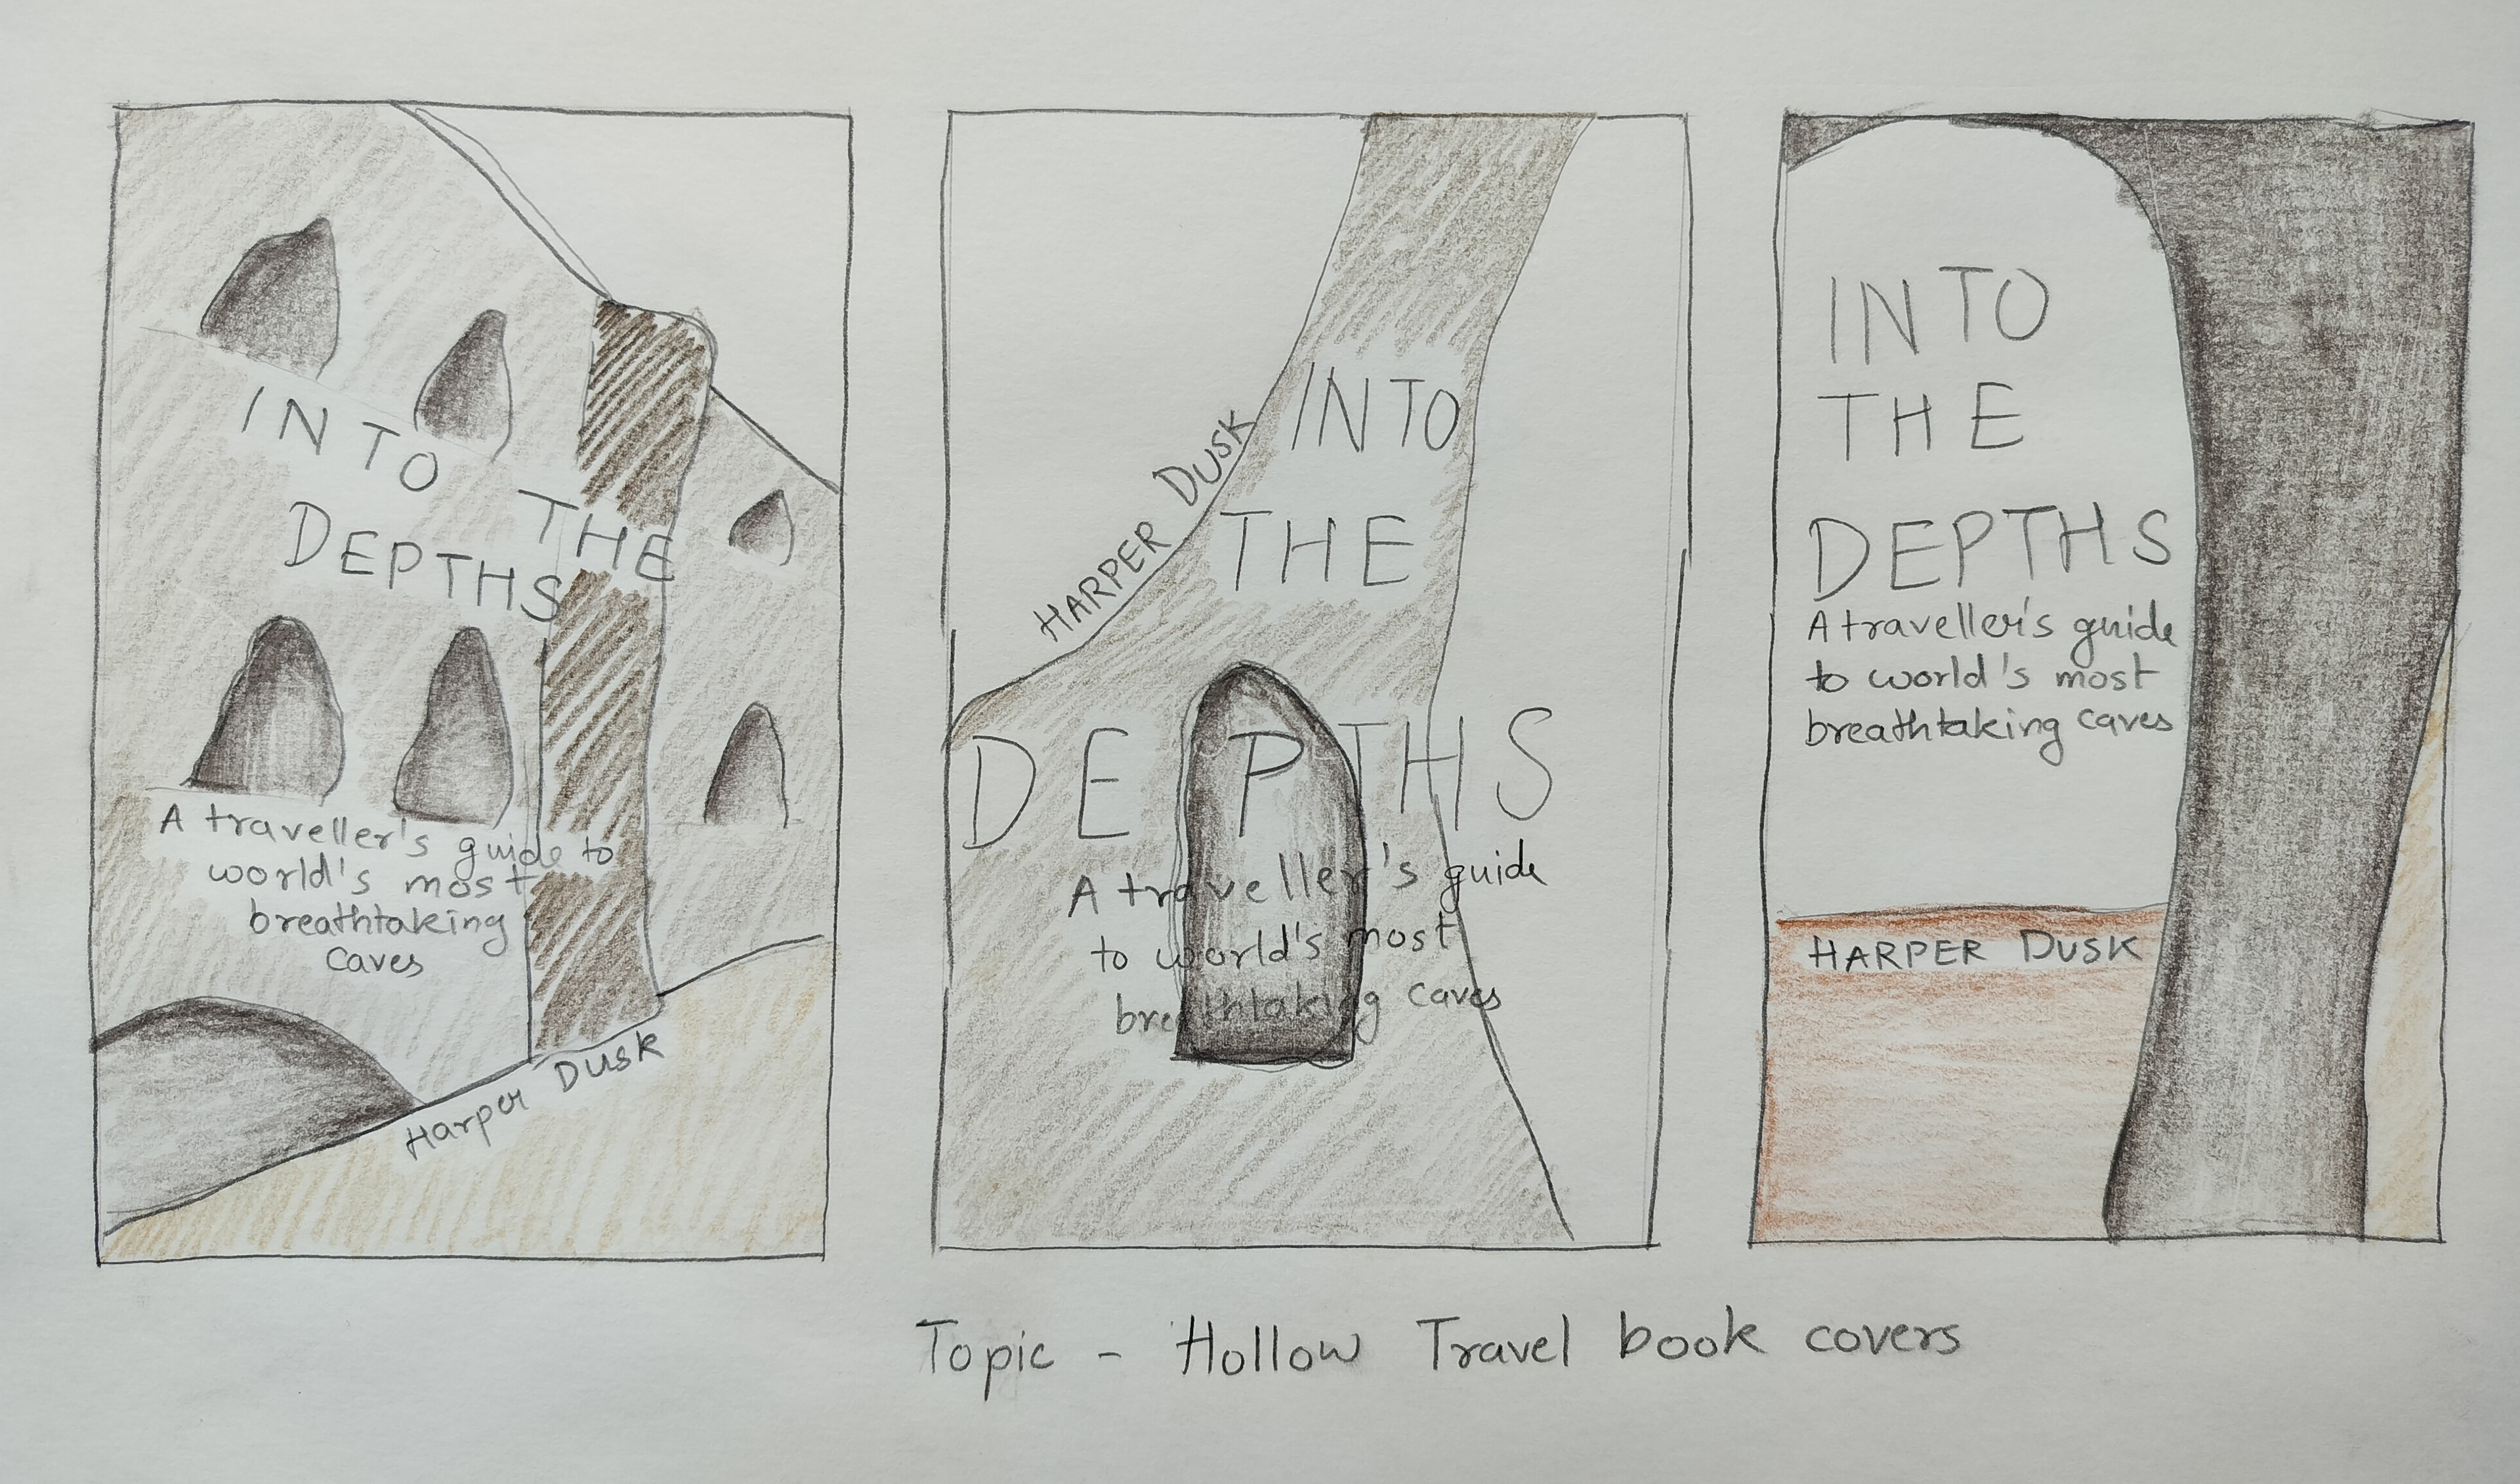 INTO THE
DEPTHS
A traveller's guide to
world's most
breathtaking
caves
Harper Dusk
HARPER DUSK
INTO
THE
DEPTHS
A traveller's guide
to world's most
breathtaking caves
INTO
THE
DEPTHS
A traveller's guide
to world's most
breathtaking caves
HARPER DUSK
Topic - Hollow Travel book covers